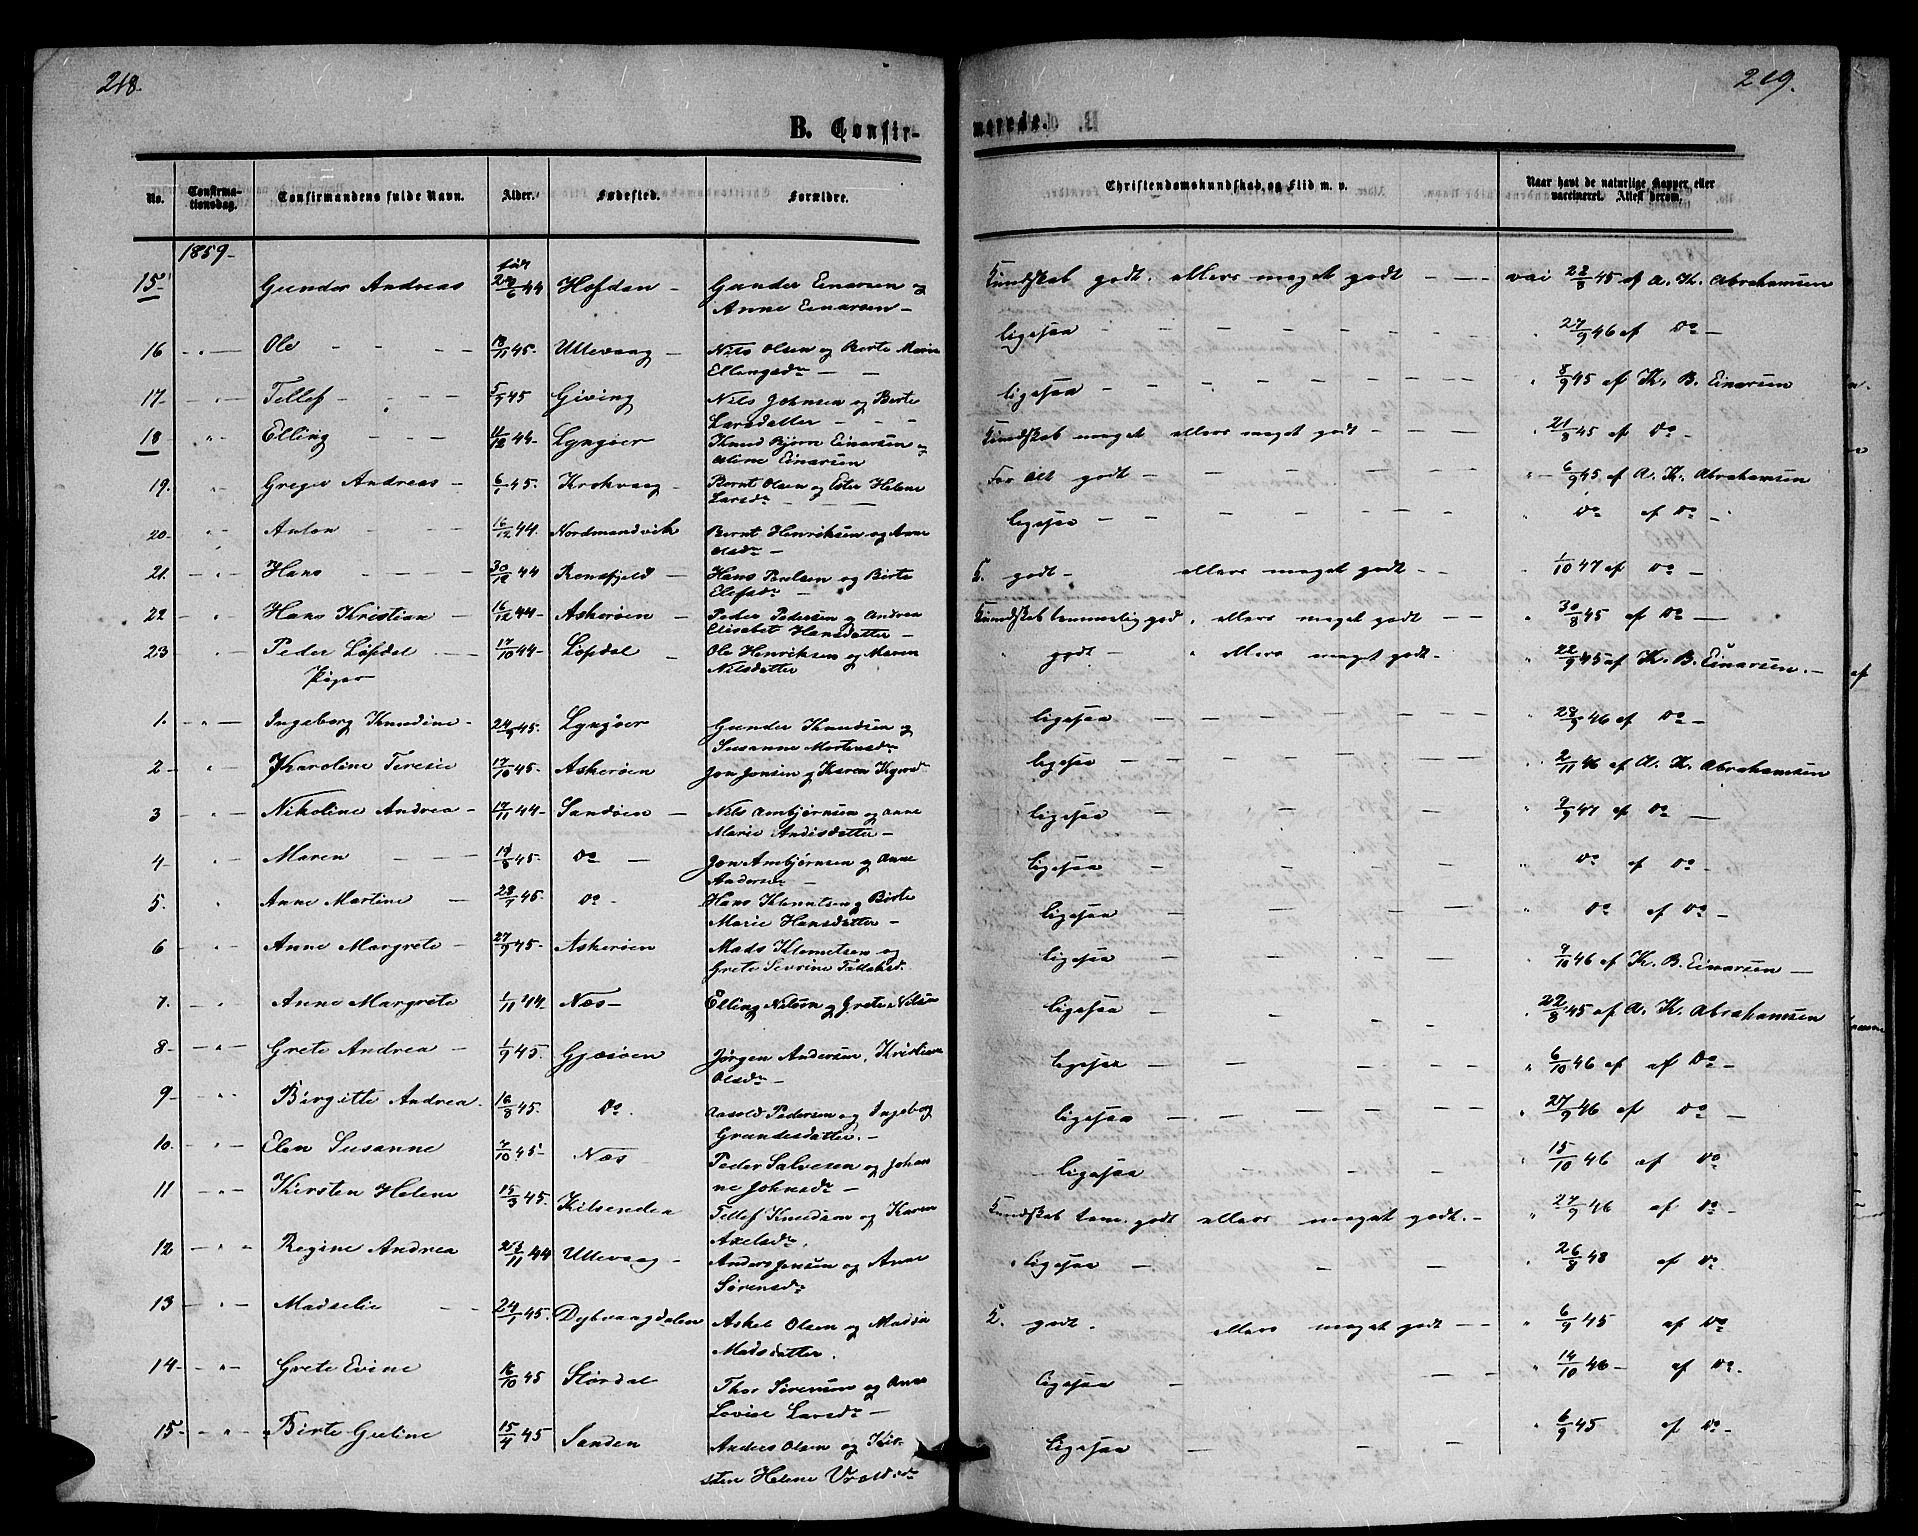 218.
B. Confir-
No. Confirma- Confirmandens fulde Navn. Alder. Fødested. Forældre.
tionsdag.
1859- født
15 Gunder Andreas 6 44 Hofdan - Gunder Einarsen og
Anne Einarsen -
16 - " - Ole - - - 18/11 45. Ullevaag - Nils Olsen og Berte Marie
Ellingsdr - -
17. - " - Tellef - - - - 5/9 45 Giving Nils Johnsen og Berte
Larsdatter - - -
18 " Elling - - - 11/12 44- Lyngøer Knud Bjørn Einarsen og
Einarsen
19. " Greger Andreas - 6/1 45. Krokvaag - Bernt Olsen og Helene
Larsdr -
20- " Anton - - 16/12 44. Nordmandvik Bernt Henriksen og Anne
Olsdr -
21. - " - Hans - - - - 30/12 44 Ronefjeld - Hans Poulsen og Birte
Elefsdr -
22 - " Hans Kristian - 16/12 44- Askerøen - Peder Pedersen og Andrea
Elisabet Hansdatter -
23 " Peder Løfdal - 17/10 44- Løfdal - Ole Henriksen og Maren
Nilsdatter
Piger
1. - " - Ingeborg Knudine - 24/9 45. Lyngøer Gunder Knudsen og
Susanne Mortensdr
2 - " Karoline Teresie 17/10 45. Askerøen Jon Jonsen og Karen
3 - " Nikoline Andrea - 17/11 44- Sandøen - Nils Ambjørnsen og Anne
Marie Andisdatter -
4 - " - Maren - - - 45. Do - Jon Ambjørnsen og Anne
Andersdr -
5. " - Anne Martine - 45 Do - Hans og Birte
Marie Hansdatter -
6 " Anne Margrete - 27/9 45- Askerøen Mads Klemetsen og
Grete Sevrine
7. " Anne Margrete 1/11 44 Næs - Elling Nilsen og Grete Nilsen
8 - " - Grete Andrea - 1/9 45. Gjæsøen Jørgen Andersen, Kristiane
Olsdr -
9 - " " Birgitte Andrea. 16/8 45. Do. Aasold Pedersen og Ingeborg
Gundersdatter. -
10. - " - Elen Susanne 7/10 45- Næs Peder Salvesen og Johan
ne Johnsdr -
11 - " - Kirsten Helene 15/3 45. Kilsenden Tellef Knudson og Karen
Axelsdr.
12 - " " Regine Andrea 44 Ullevaag - Anders Jensen og Anne
Sørensdr
13 - " - Madselie - - 24/1 45. Dybvaagdalen Askel Olsen og Madsia
Madsdatter.
14- - " - Grete Evine 16/10 45 Størdal Thor Sørensen og Anne
Lovise Larsdr -
15- - " - Birte Guline 15/4 45 Sanden Anders Olsen og Kir-
sten Helene
219.
merede.
Christendomskundskab, og Flid m. v. Naar havt de naturlige Kopper, eller
vaccineret. Attest derom.
Kundskab godt. ellers meget godt - - - vai 45 af A. K. Abrahamsen
ligesaa - - - - - - 27/9 46 af Do -
ligesaa - - - - - - - " 8/9 45 af K. B. Einarsen
Kundskab meget ellers meget godt - - - " 21/8 45 af Do -
For Alt godt - - - - - " - 6/9 45 af A. K. Abrahamsen
ligesaa - - - - - - - " Do af Do -
K. godt - ellers meget godt - - " 1/10 47 af Do -
Kundskab temmelig god, ellers meget godt - - " 30/8 45 af Do -
" godt - " ellers meget godt - " 22/9 45 af K. B. Einarsen. -
ligesaa - - - - - - " 28/9 46 af Do -
ligesaa - - - - - - " 2/11 46 af A. K. Abrahamsen
ligesaa - - - - - " 9/9 47 af Do -
ligesaa - - - - - " Do af Do -
ligesaa - - - - - " Do af Do -
ligesaa - - - - - " 9/10 46 af K. B. Einarsen -
ligesaa - - - - - . 22/8 45 af A. K. Abrahamsen
ligesaa - - - - - " 6/10 46 af af Do -
ligesaa - - - - - " 27/9 46 af Do -
ligesaa - - - - " 15/10 46 af Do
Kundskab tem. godt ellers meget godt. - " 27/9 46 af Do -
" ligesaa - - - - " 26/8 48 af Do
K. godt. ellers meget godt - - " 6/9 45 af Do
ligesaa - - - " 14/10 46 - af Do -
ligesaa - - - " 6/9 45 af Do -